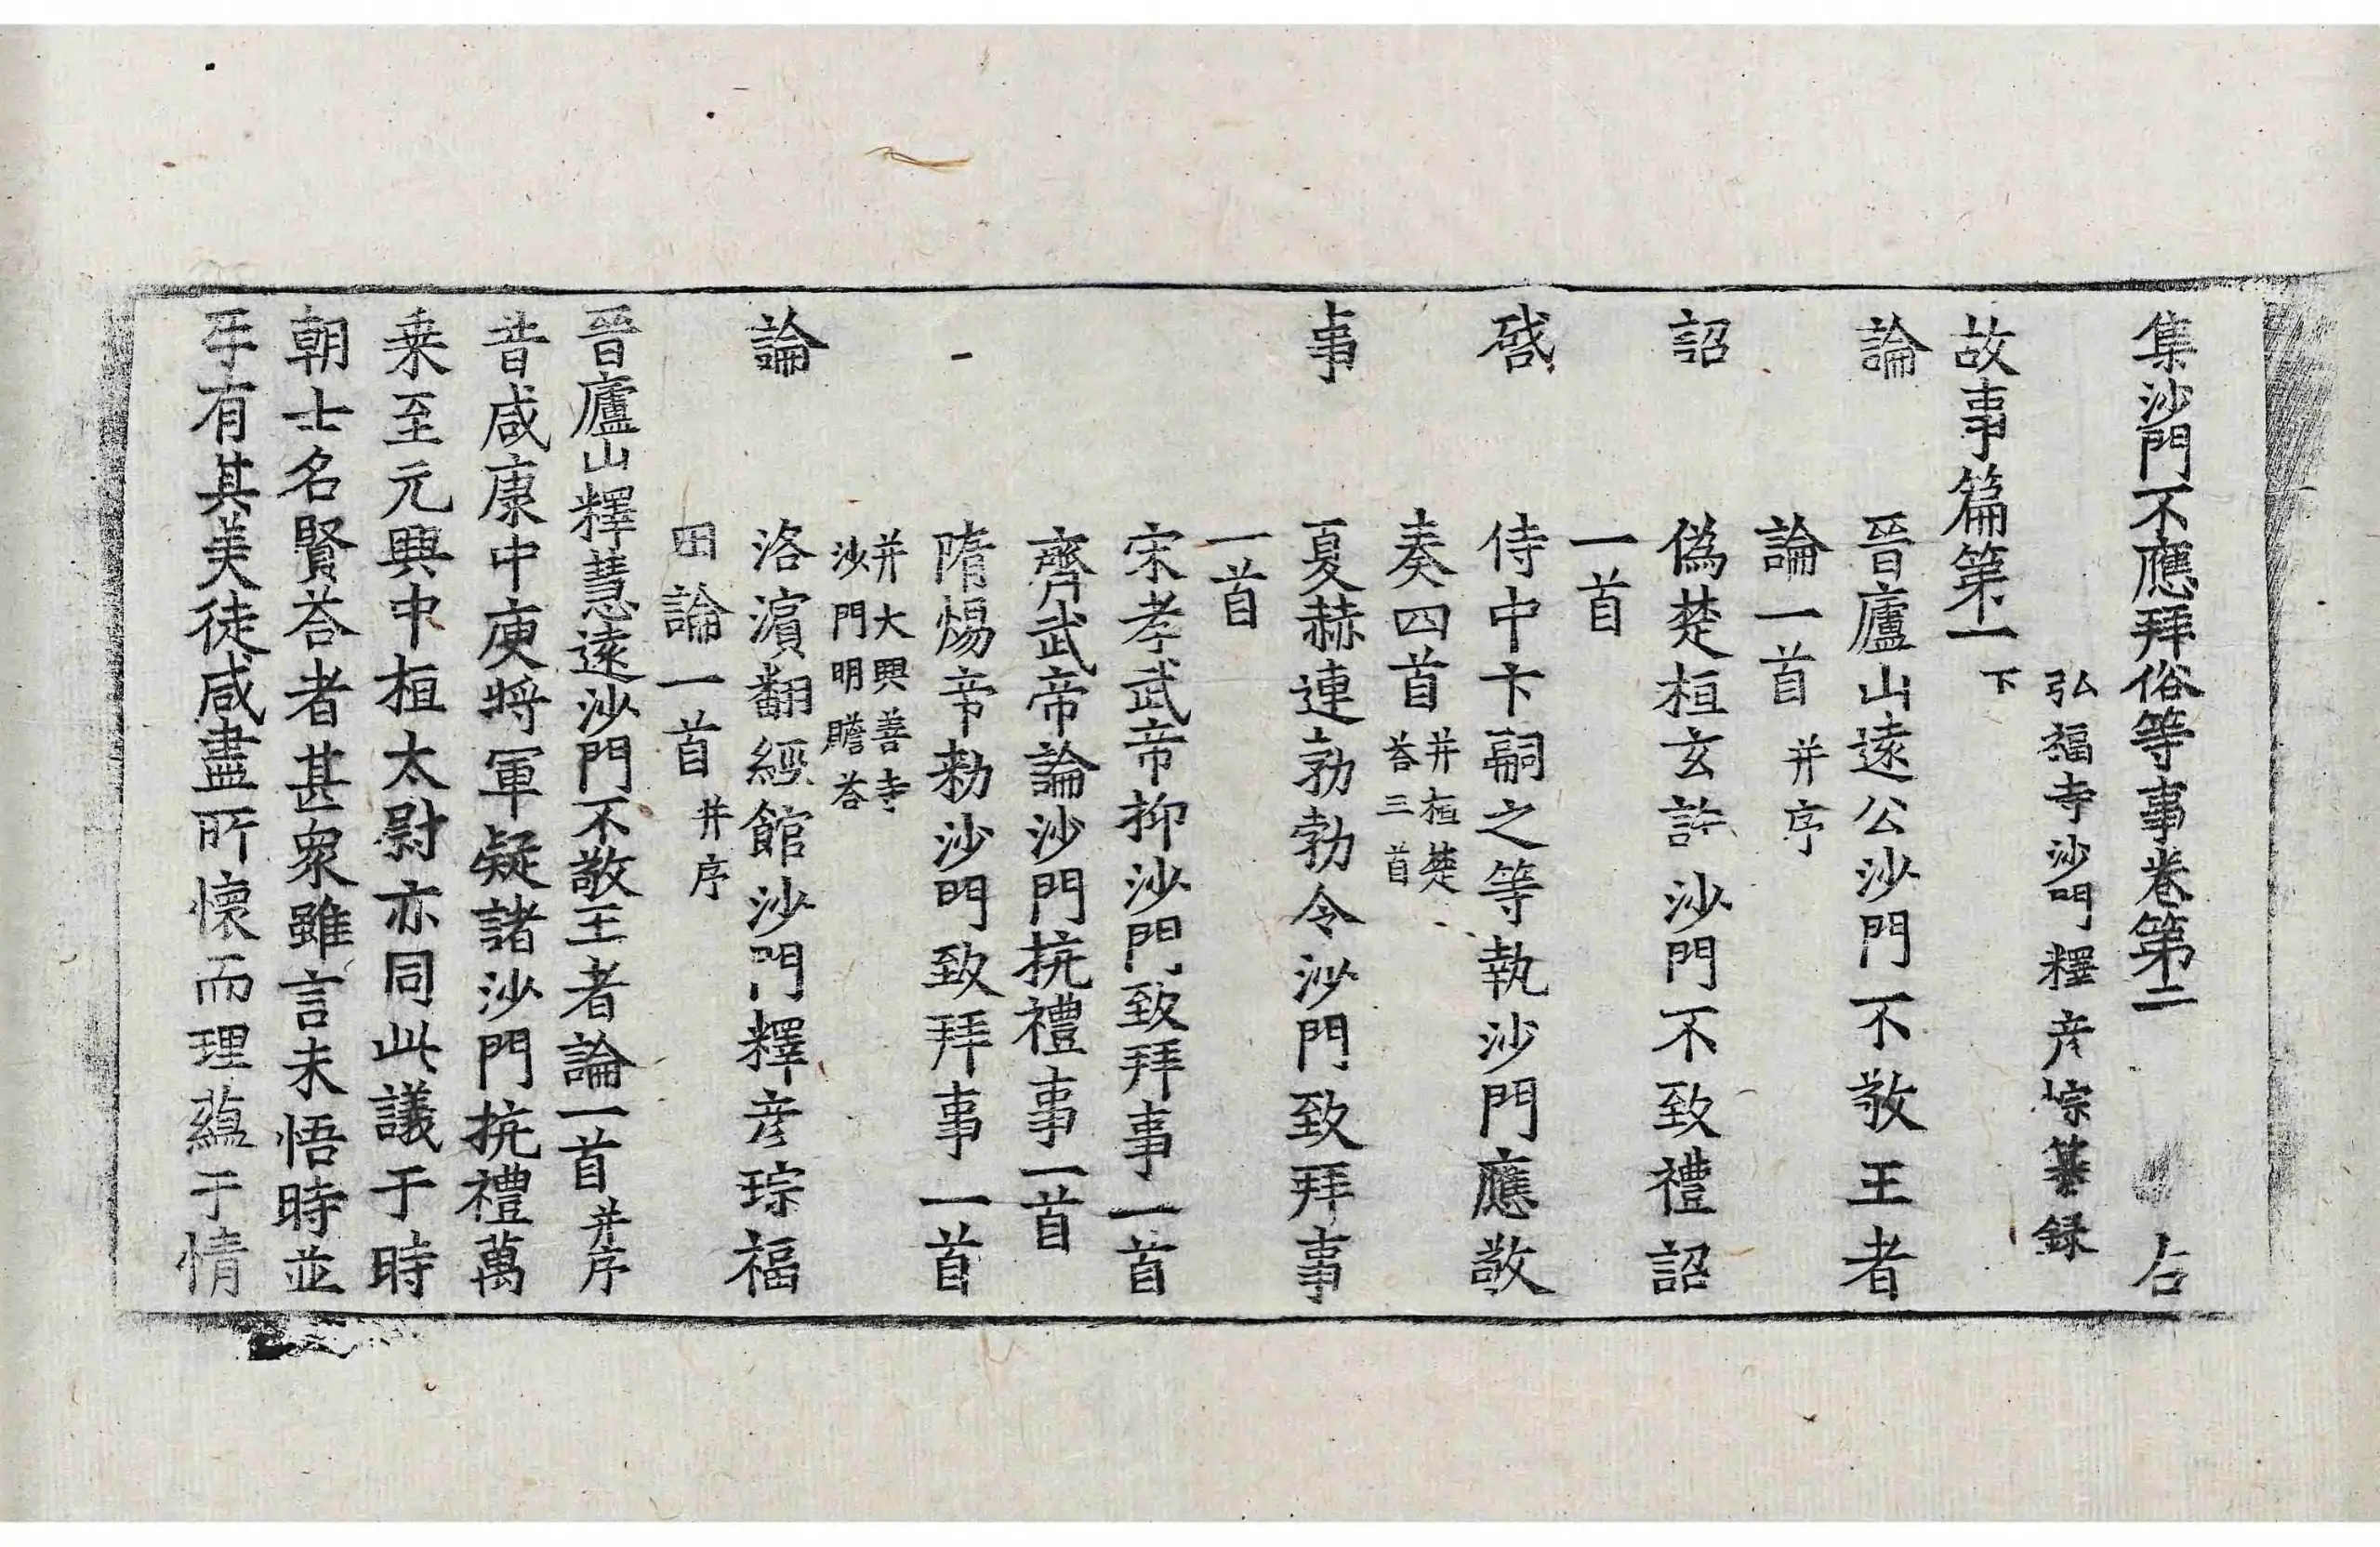 集沙門不應拜俗等事卷第二 右
弘福寺沙門釋彥悰纂録
故事篇第一下
論 晉廬山遠公沙門不敬王者
論一首并序
詔 偽楚桓玄許沙門不致禮詔
一首
啓 侍中卞嗣之等執沙門應敬
奏四首并桓楚荅三首
事 夏赫連勃勃令沙門致拜事
一首
宋孝武帝抑沙門致拜事一首
齊武帝論沙門抗禮事一首
隋煬帝勑沙門致拜事一首
并大興善寺沙門明贍荅
論 洛濱翻經館沙門釋彥琮福
田論一首并序
晉廬山釋慧遠沙門不敬王者論一首并序
昔咸康中庾將軍疑諸沙門抗禮萬
乗至元興中桓太尉亦同此議于時
朝士名賢荅者甚衆雖言未悟時並
乎有其美徒咸盡所懷而理蘊于情